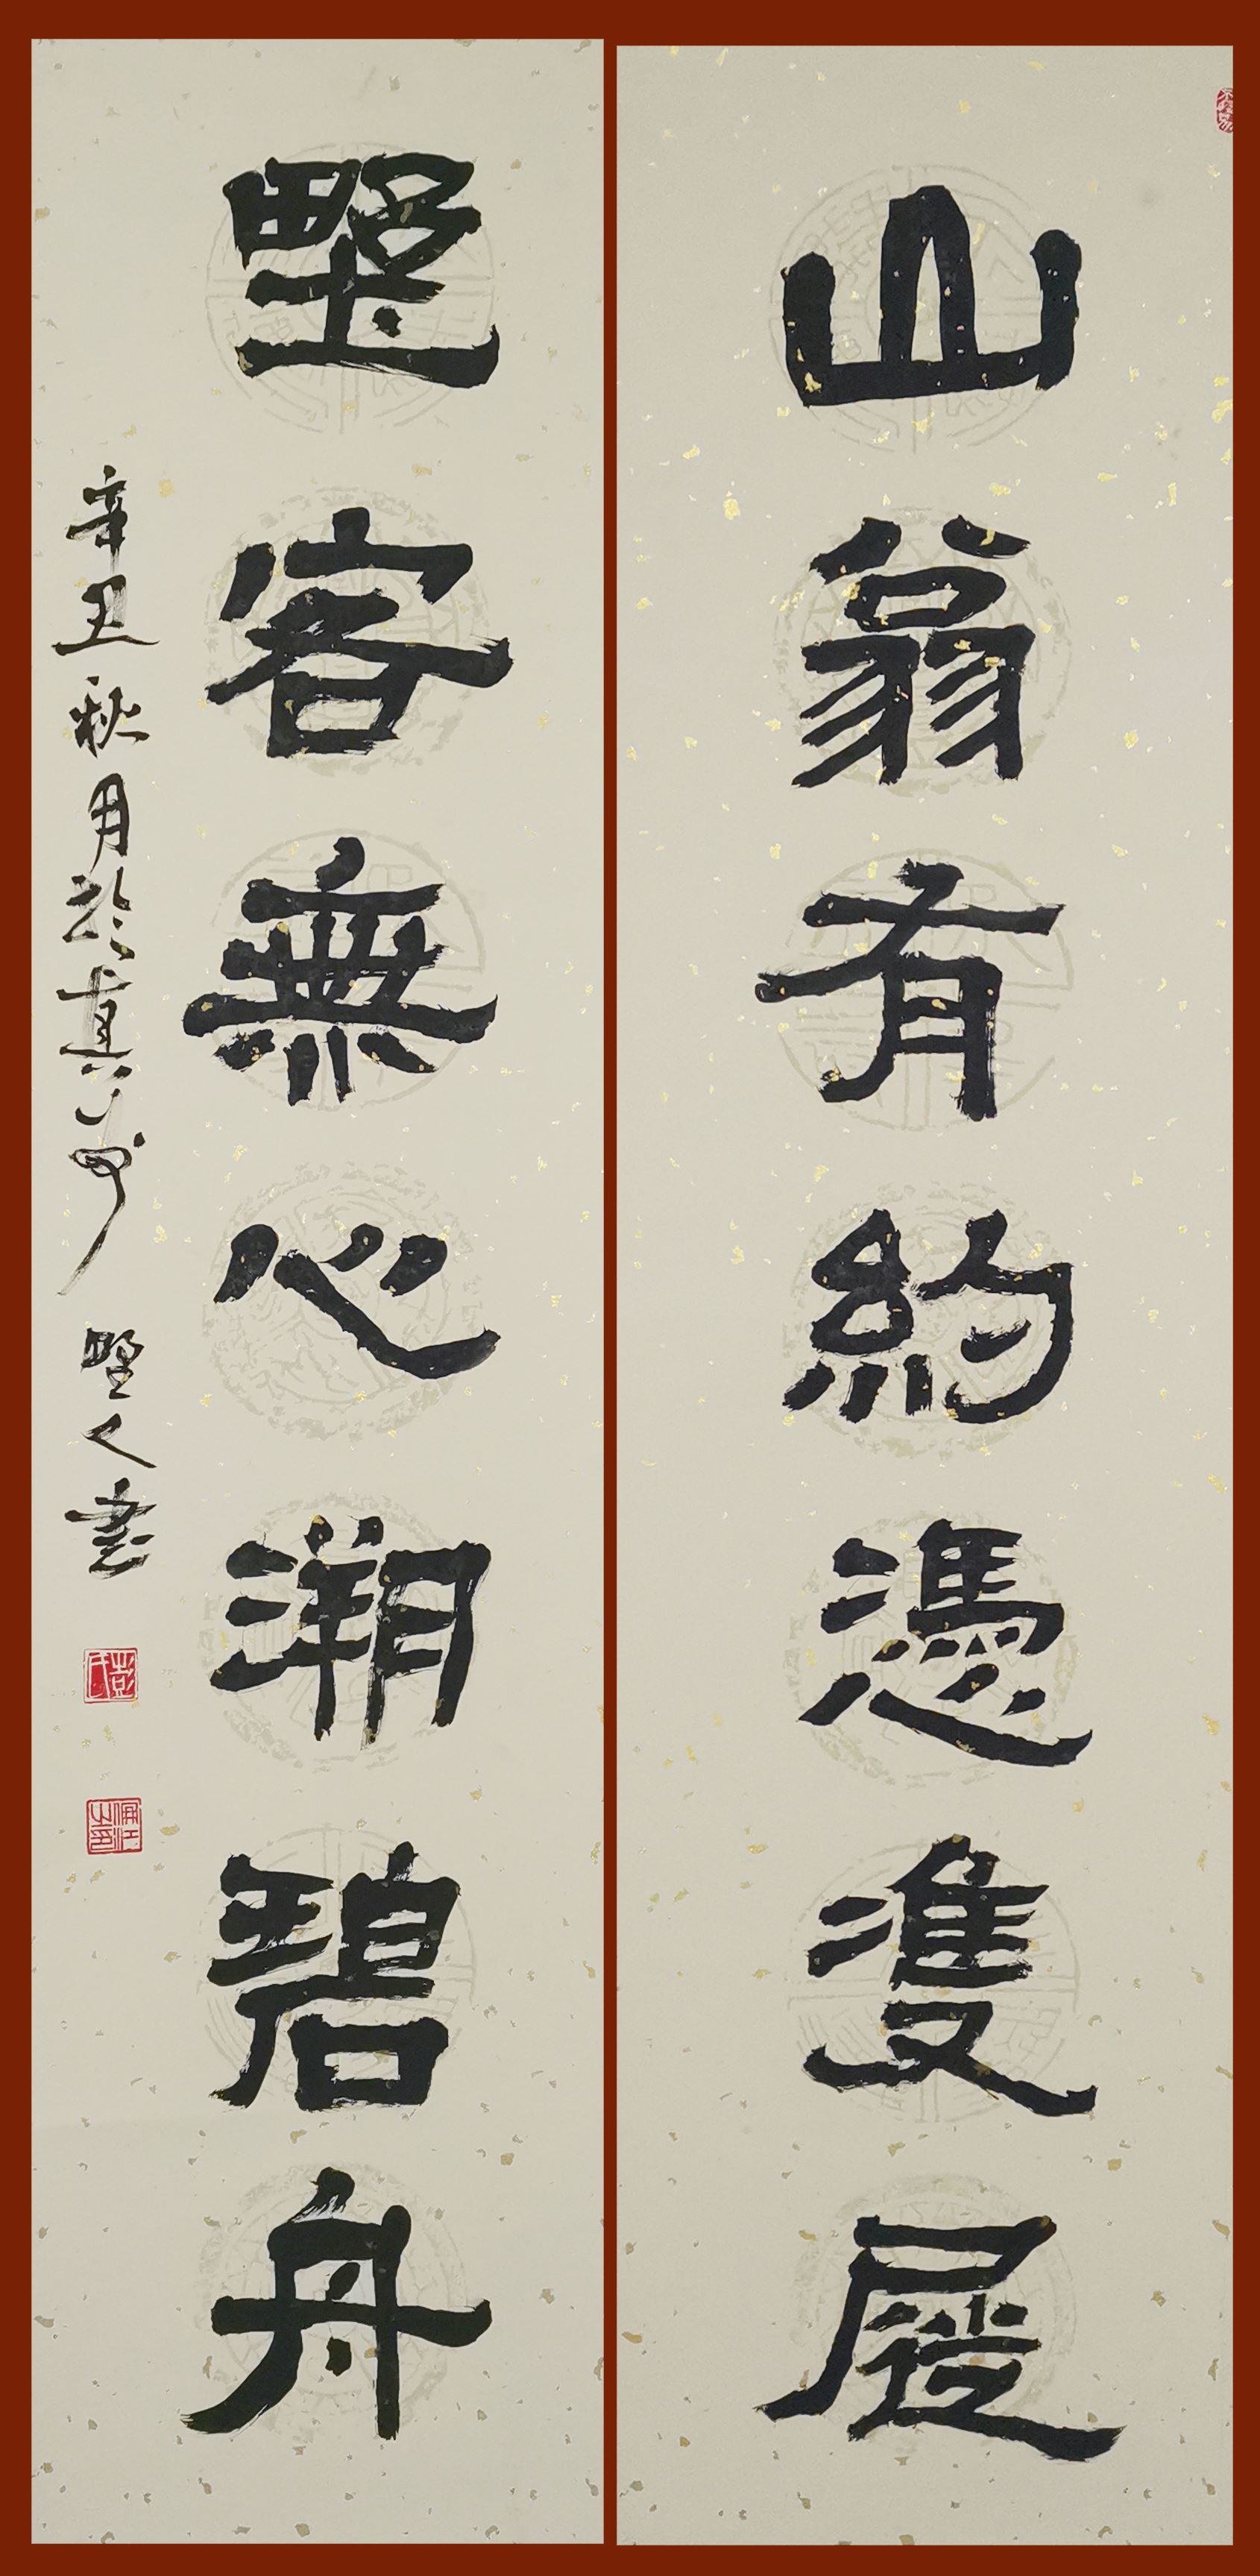 山翁有約憑雙屐
野客無心溯碧舟
辛丑秋月於真 野人書
彭氏